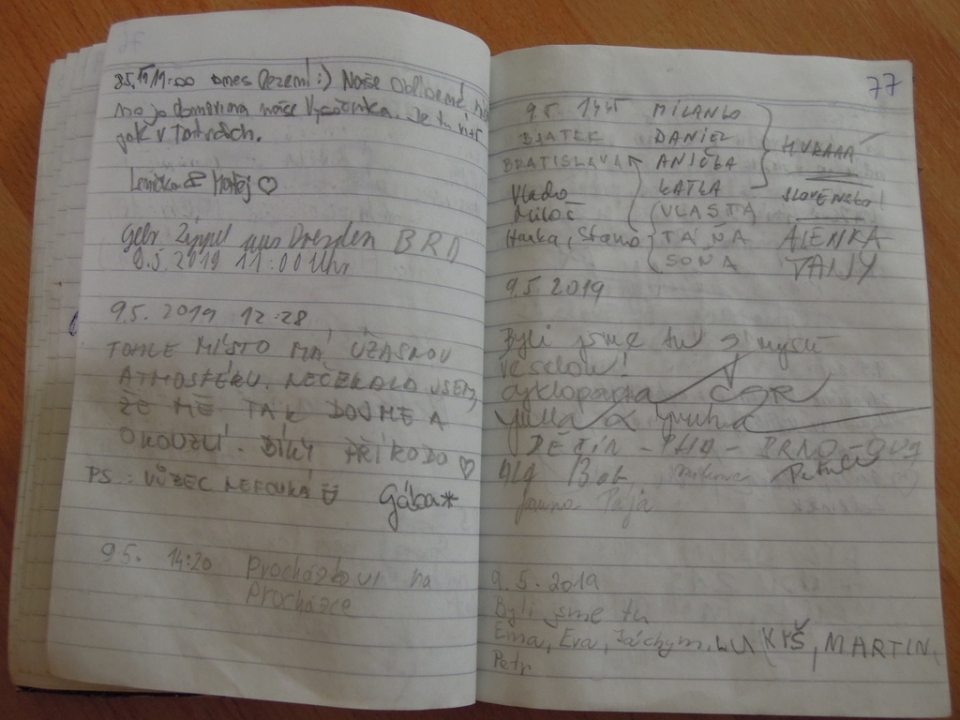 dnes Bezemí :) Naše oblíbené
naše Vysočinka. Je tu
jak v Tatrách.
Lenička & Matěj ♡
Gebr. Zippel aus Dresden BRD
9.5.2019 11:00 Uhr
9.5. 2019 12:28
TOHLE MÍSTO MÁ ÚŽASNOU
ATMOSFÉRU. NEČEKALA JSEM,
ŽE MĚ TAK DOJME A
OKOUZLÍ. DÍKY PŘÍRODO ♡
PS.: VŮBEC NEFOUKÁ
Gába*
9.5. 14:20 Procházkovi na
Procházce
77
9.5. 1445 MILANKO
BJATEK DANIEL
BRATISLAVA ANIČKA HURAAA
Vlado KATKA SLOVENSKO!
Miloš VLASTA
Hanka, Stano TÁŇA ALENKA
SOŇA JANY
9.5.2019
Byli jsme tu s myslí
veselou!
ČSR
DĚČÍN - PHA - BRNO - OVA
Bob
Jauna Pája
9.5.2019
Byli jsme tu
Ema, Eva, Jáchym, LUKYŠ, MARTIN,
Petr